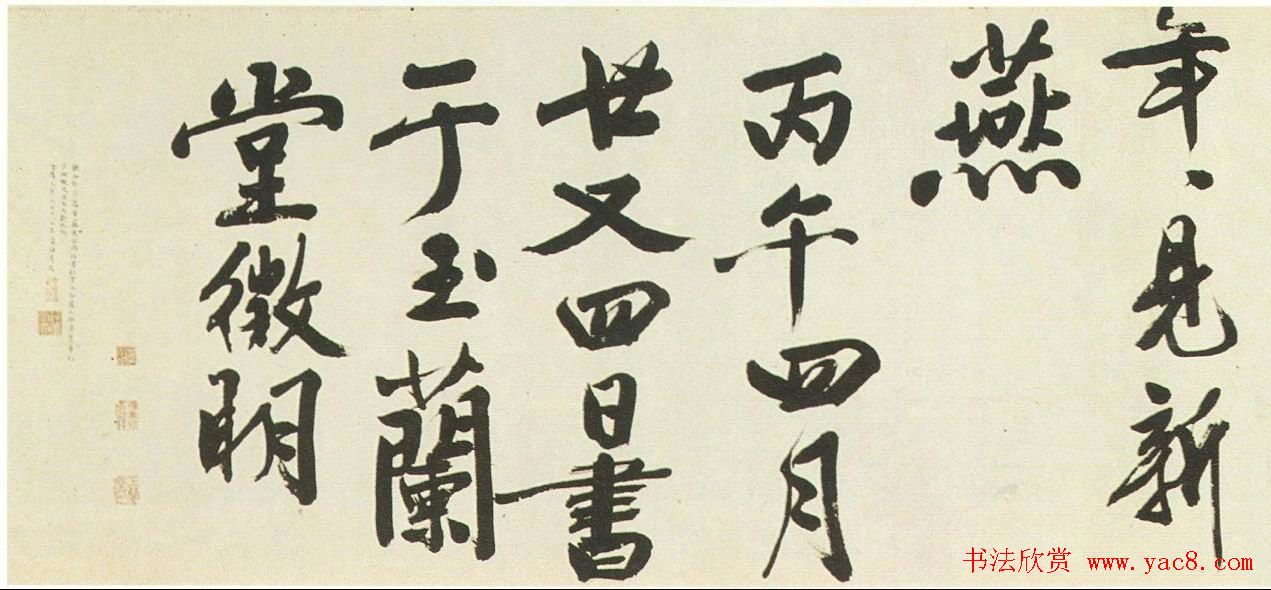 年〻見新
燕
丙午四月
廿又四日書
于玉蘭
堂徵明
书法欣赏 www.yac8.com